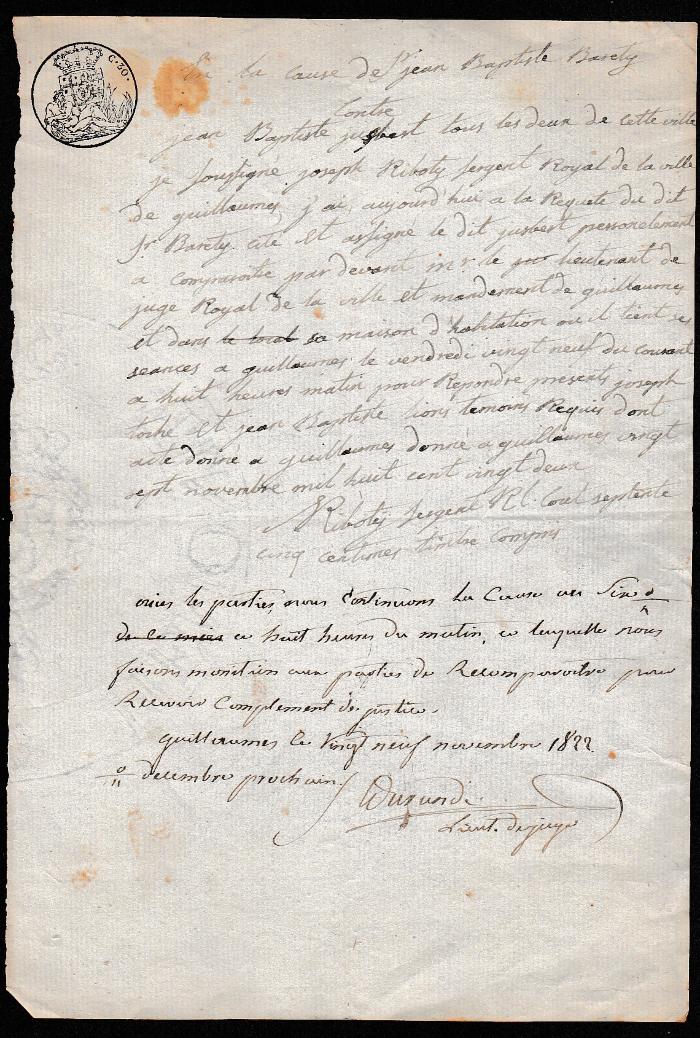 C. 20.
En la cause de Sr jean Baptiste Barety
Contre
jean Baptiste jusbert tous les deux de cette ville
je soussigné joseph Riboty sergent Royal de la ville
de guillaumes, j'ai aujourd'hui a la Requete du dit
Sr Barety cité et assigné le dit jusbert personelement
a comparoitre par devant mr le lieutenant de
juge Royal de la ville et mandement de guillaumes
et dans le local sa maison d'habitation ou il tient ses
seances a guillaumes le vendredi vingt neuf du courant
a huit heures matin pour Repondre presents joseph
toche et jean Baptiste lions temoins Requis dont
acte donné a guillaumes donné a guillaumes vingt
sept novembre mil huit cent vingt deux
Riboty sergent Rl. Cout septente
cinq centimes timbre compris
ouies les parties, nous Continuons La Cause au Six
de ce mois a huit heures du matin, a laquelle nous
faisons monition aux parties de Recomparoitre pour
Recevoir Complement de justice.
guillaumes Ce Vingt neuf novembre 1822.
decembre prochain
Durandi
Lieut. de juge